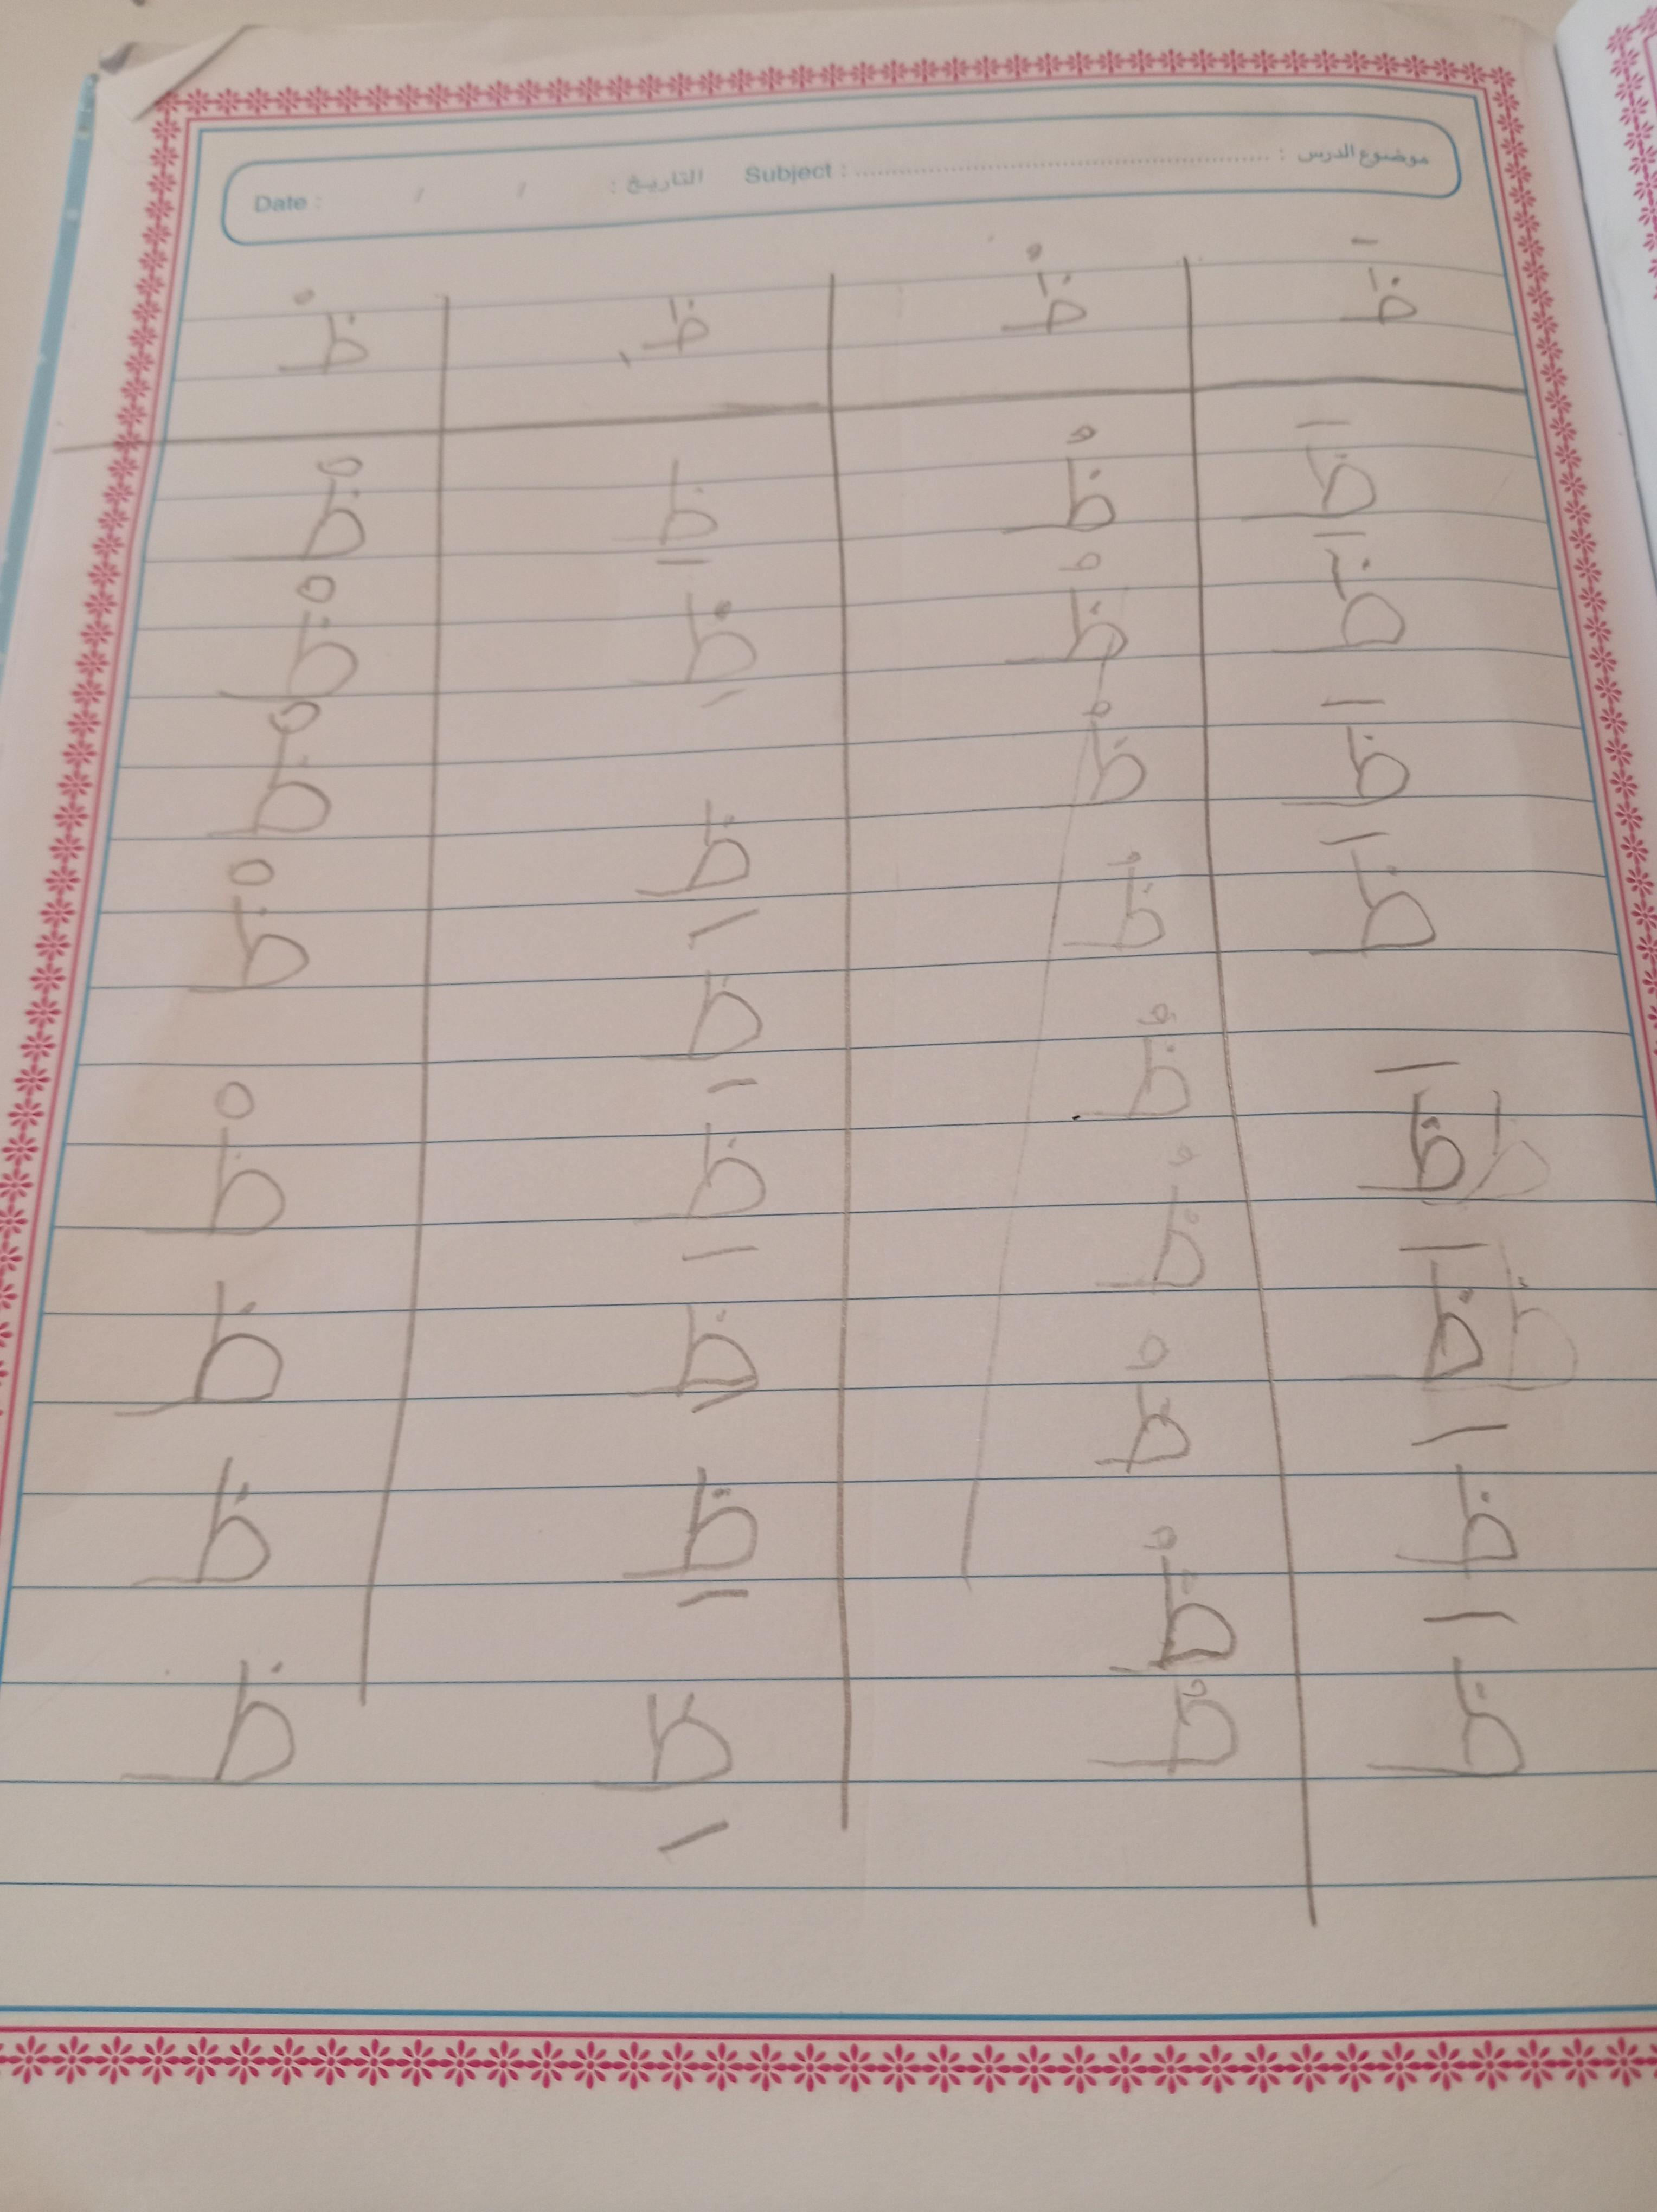 موضوع الدرس : Subject : التاريخ : / / Date :
ظَ ظُ ظِ ظْ
ظَ ظُ ظِ ظْ
ظَ ظُ ظِ ظْ
ظَ ظُ ظِ ظْ
ظَ ظُ ظِ ظْ
ظَ ظُ ظِ ظْ
ظَ ظُ ظِ ظ
ظَ ظُ ظِ ظ
ظَ ظُ طِ ظ
ظُ